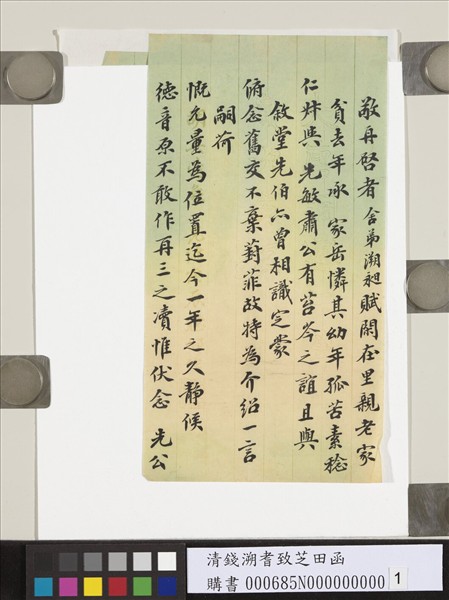 敬再啓者舍弟溯昶賦閑在里親老家
貧去年承 家岳憐其幼年孤苦素稔
仁丈與 先敏肅公有苔岑之誼且與
敘堂先伯亦曾相識定蒙
俯念舊交不棄葑菲故特為介紹一言
嗣荷
慨允量為位置迄今一年之久靜候
德音原不敢作再三之瀆惟伏念 先公
清錢溯耆致芝田函
購書 000685N000000000
1